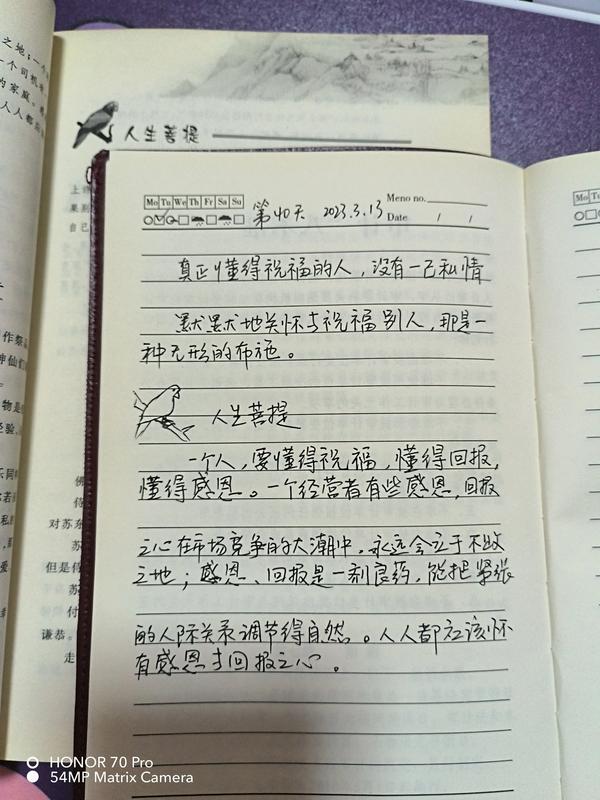 人生菩提
Mo Tu We Th Fr Sa Su
Memo no.
第40天 2023.3.13
Date / /
真正懂得祝福的人，没有一己私情
默默地关怀与祝福别人，那是一
种无形的布施。
人生菩提
一个人，要懂得祝福，懂得回报，
懂得感恩。一个经营者有些感恩，回报
之心在市场竞争的大潮中，永远会立于不败
之地；感恩、回报是一剂良药，能把紧张
的人际关系调节得自然。人人都应该怀
有感恩与回报之心。
之地；一个
个司机
的家庭。
人人都
上
果
自己
作祭
神仙们
物是
经验
乐同
私
爱
佛
侍
对苏东
苏
但是
苏
付
谦恭。
走
Mo Tu
HONOR 70 Pro
54MP Matrix Camera